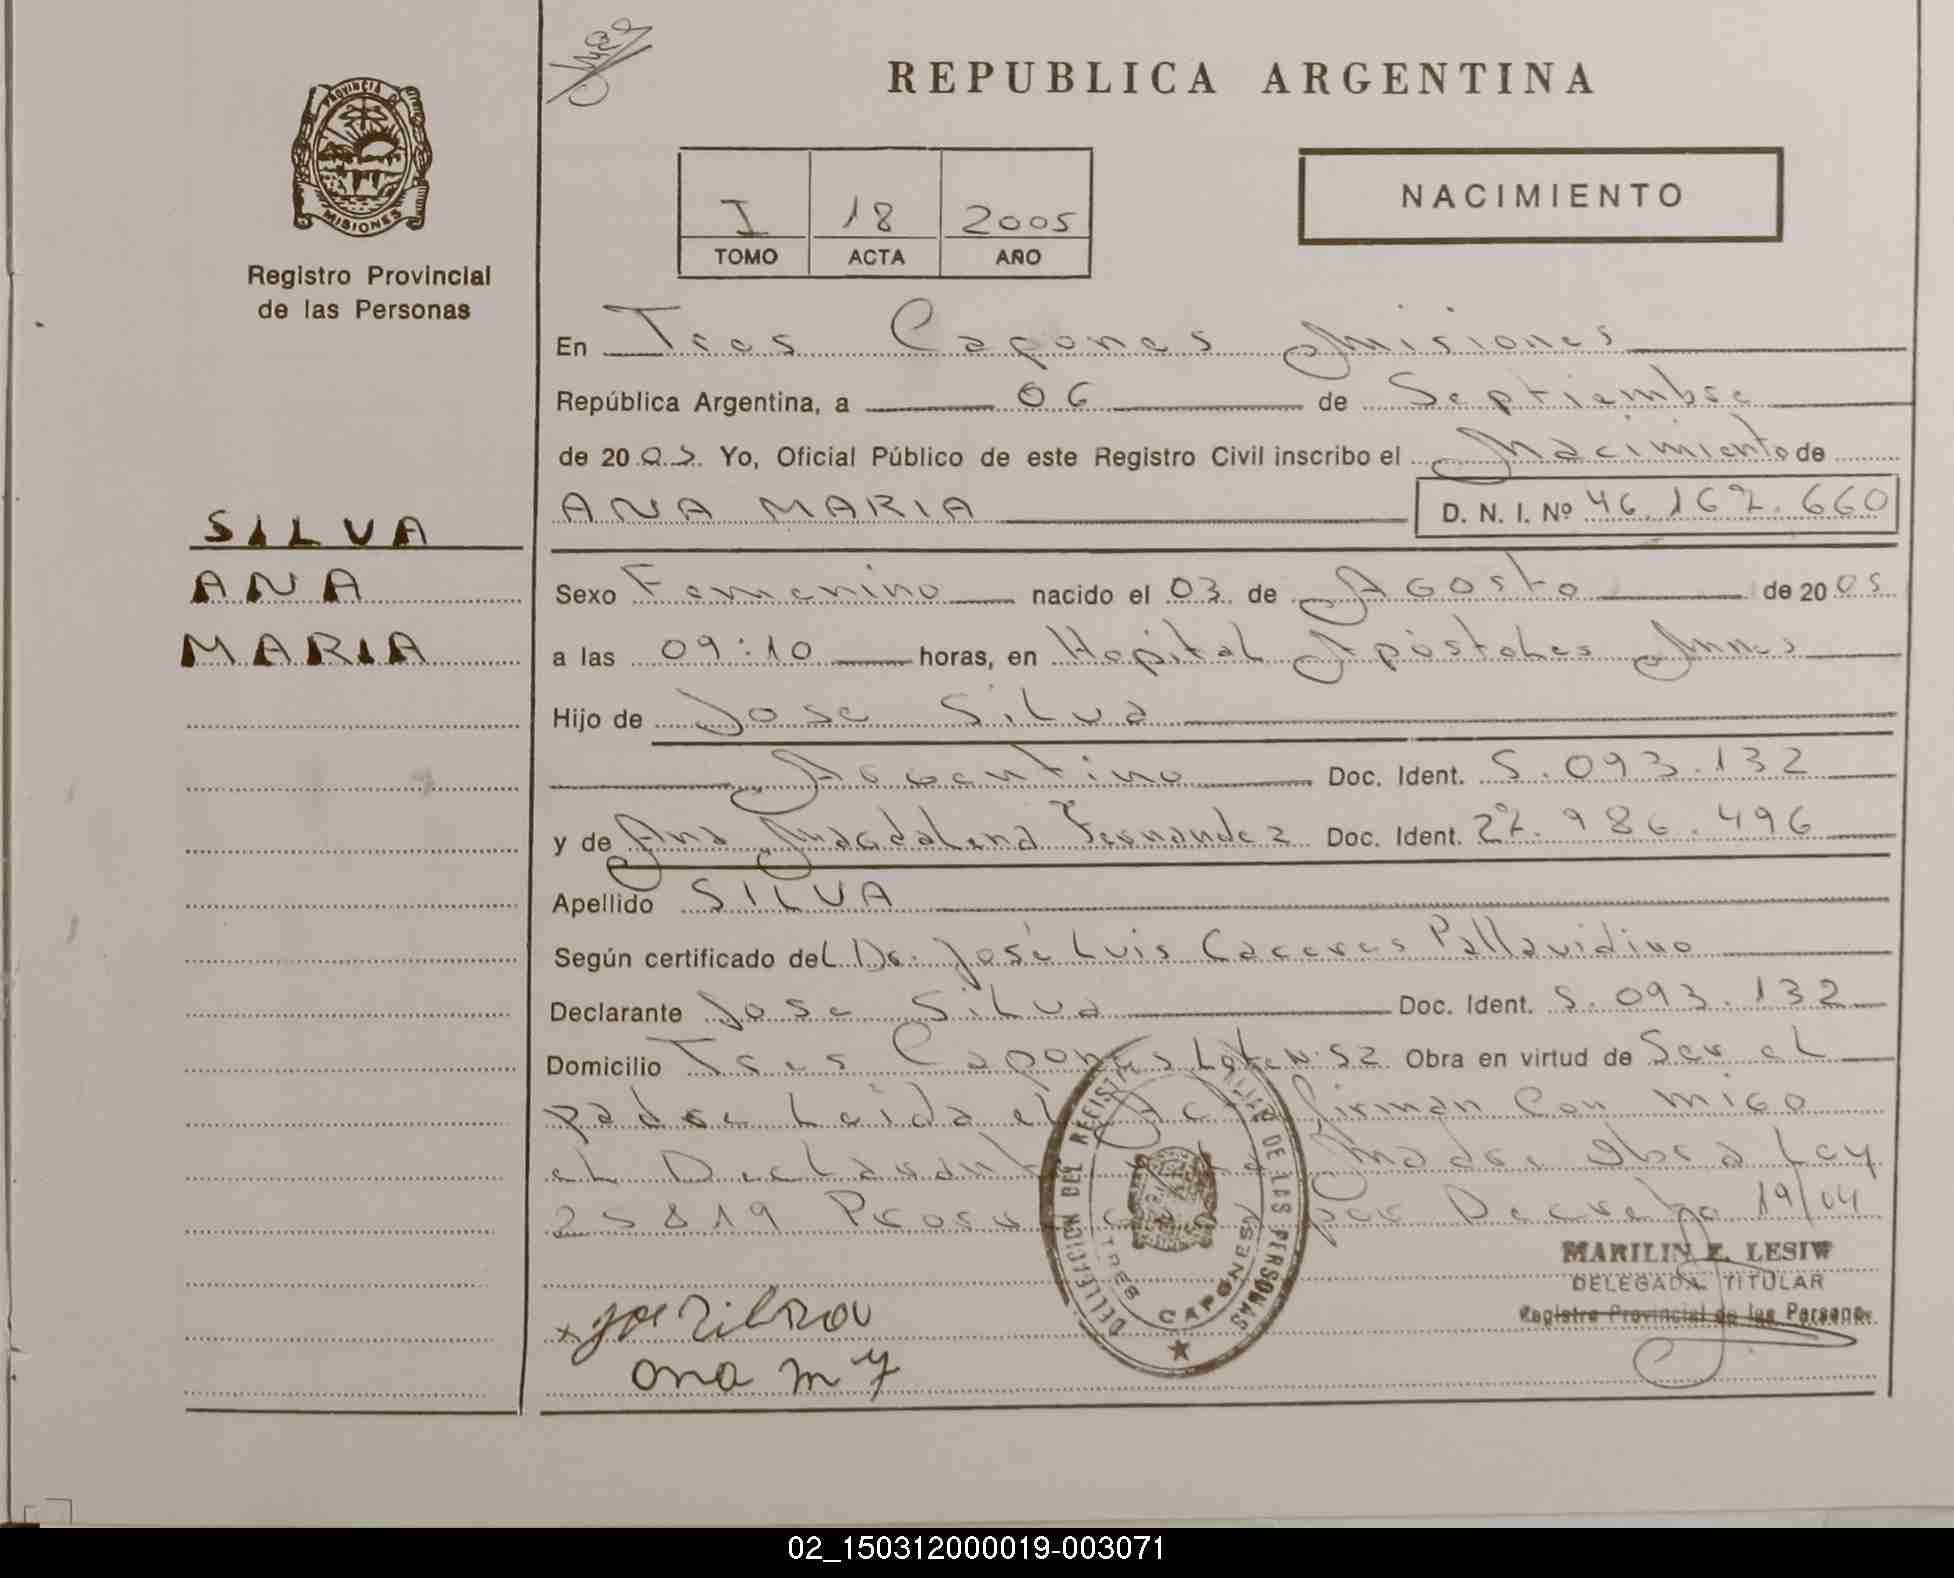 REPUBLICA ARGENTINA
PROVINCIA DE
MISIONES
Registro Provincial
de las Personas
I 18 2005
TOMO ACTA AÑO
NACIMIENTO
En Tres Capones Misiones
República Argentina, a 06 de Septiembre
de 2005. Yo, Oficial Público de este Registro Civil inscribo el Nacimiento de
ANA MARIA D. N. I. Nº 46.162.660
SILVA
ANA
MARIA
Sexo Femenino nacido el 03 de Agosto de 2005
a las 09:10 horas, en Hopital Apóstoles Mnes
Hijo de Jose Silva
Argentino Doc. Ident. 5.093.132
y de Ana Magdalena Fernandez Doc. Ident. 27.986.496
Apellido SILVA
Según certificado del Dr. José Luis Caceres Pallavidino
Declarante Jose Silva Doc. Ident. 5.093.132
Domicilio Tres Capones Lote N. 52 Obra en virtud de Ser el
padre Leida el Acta firman Con migo
el Declarante Madre Obra Ley
25819 por Decreto 19/04
DELEGACION DEL REGISTRO DE LAS PERSONAS
TRES CAPONES
MARILIN Z. LESIW
DELEGADA TITULAR
Registro Provincial de las Personas
x jose silva
ana m f
02_150312000019-003071